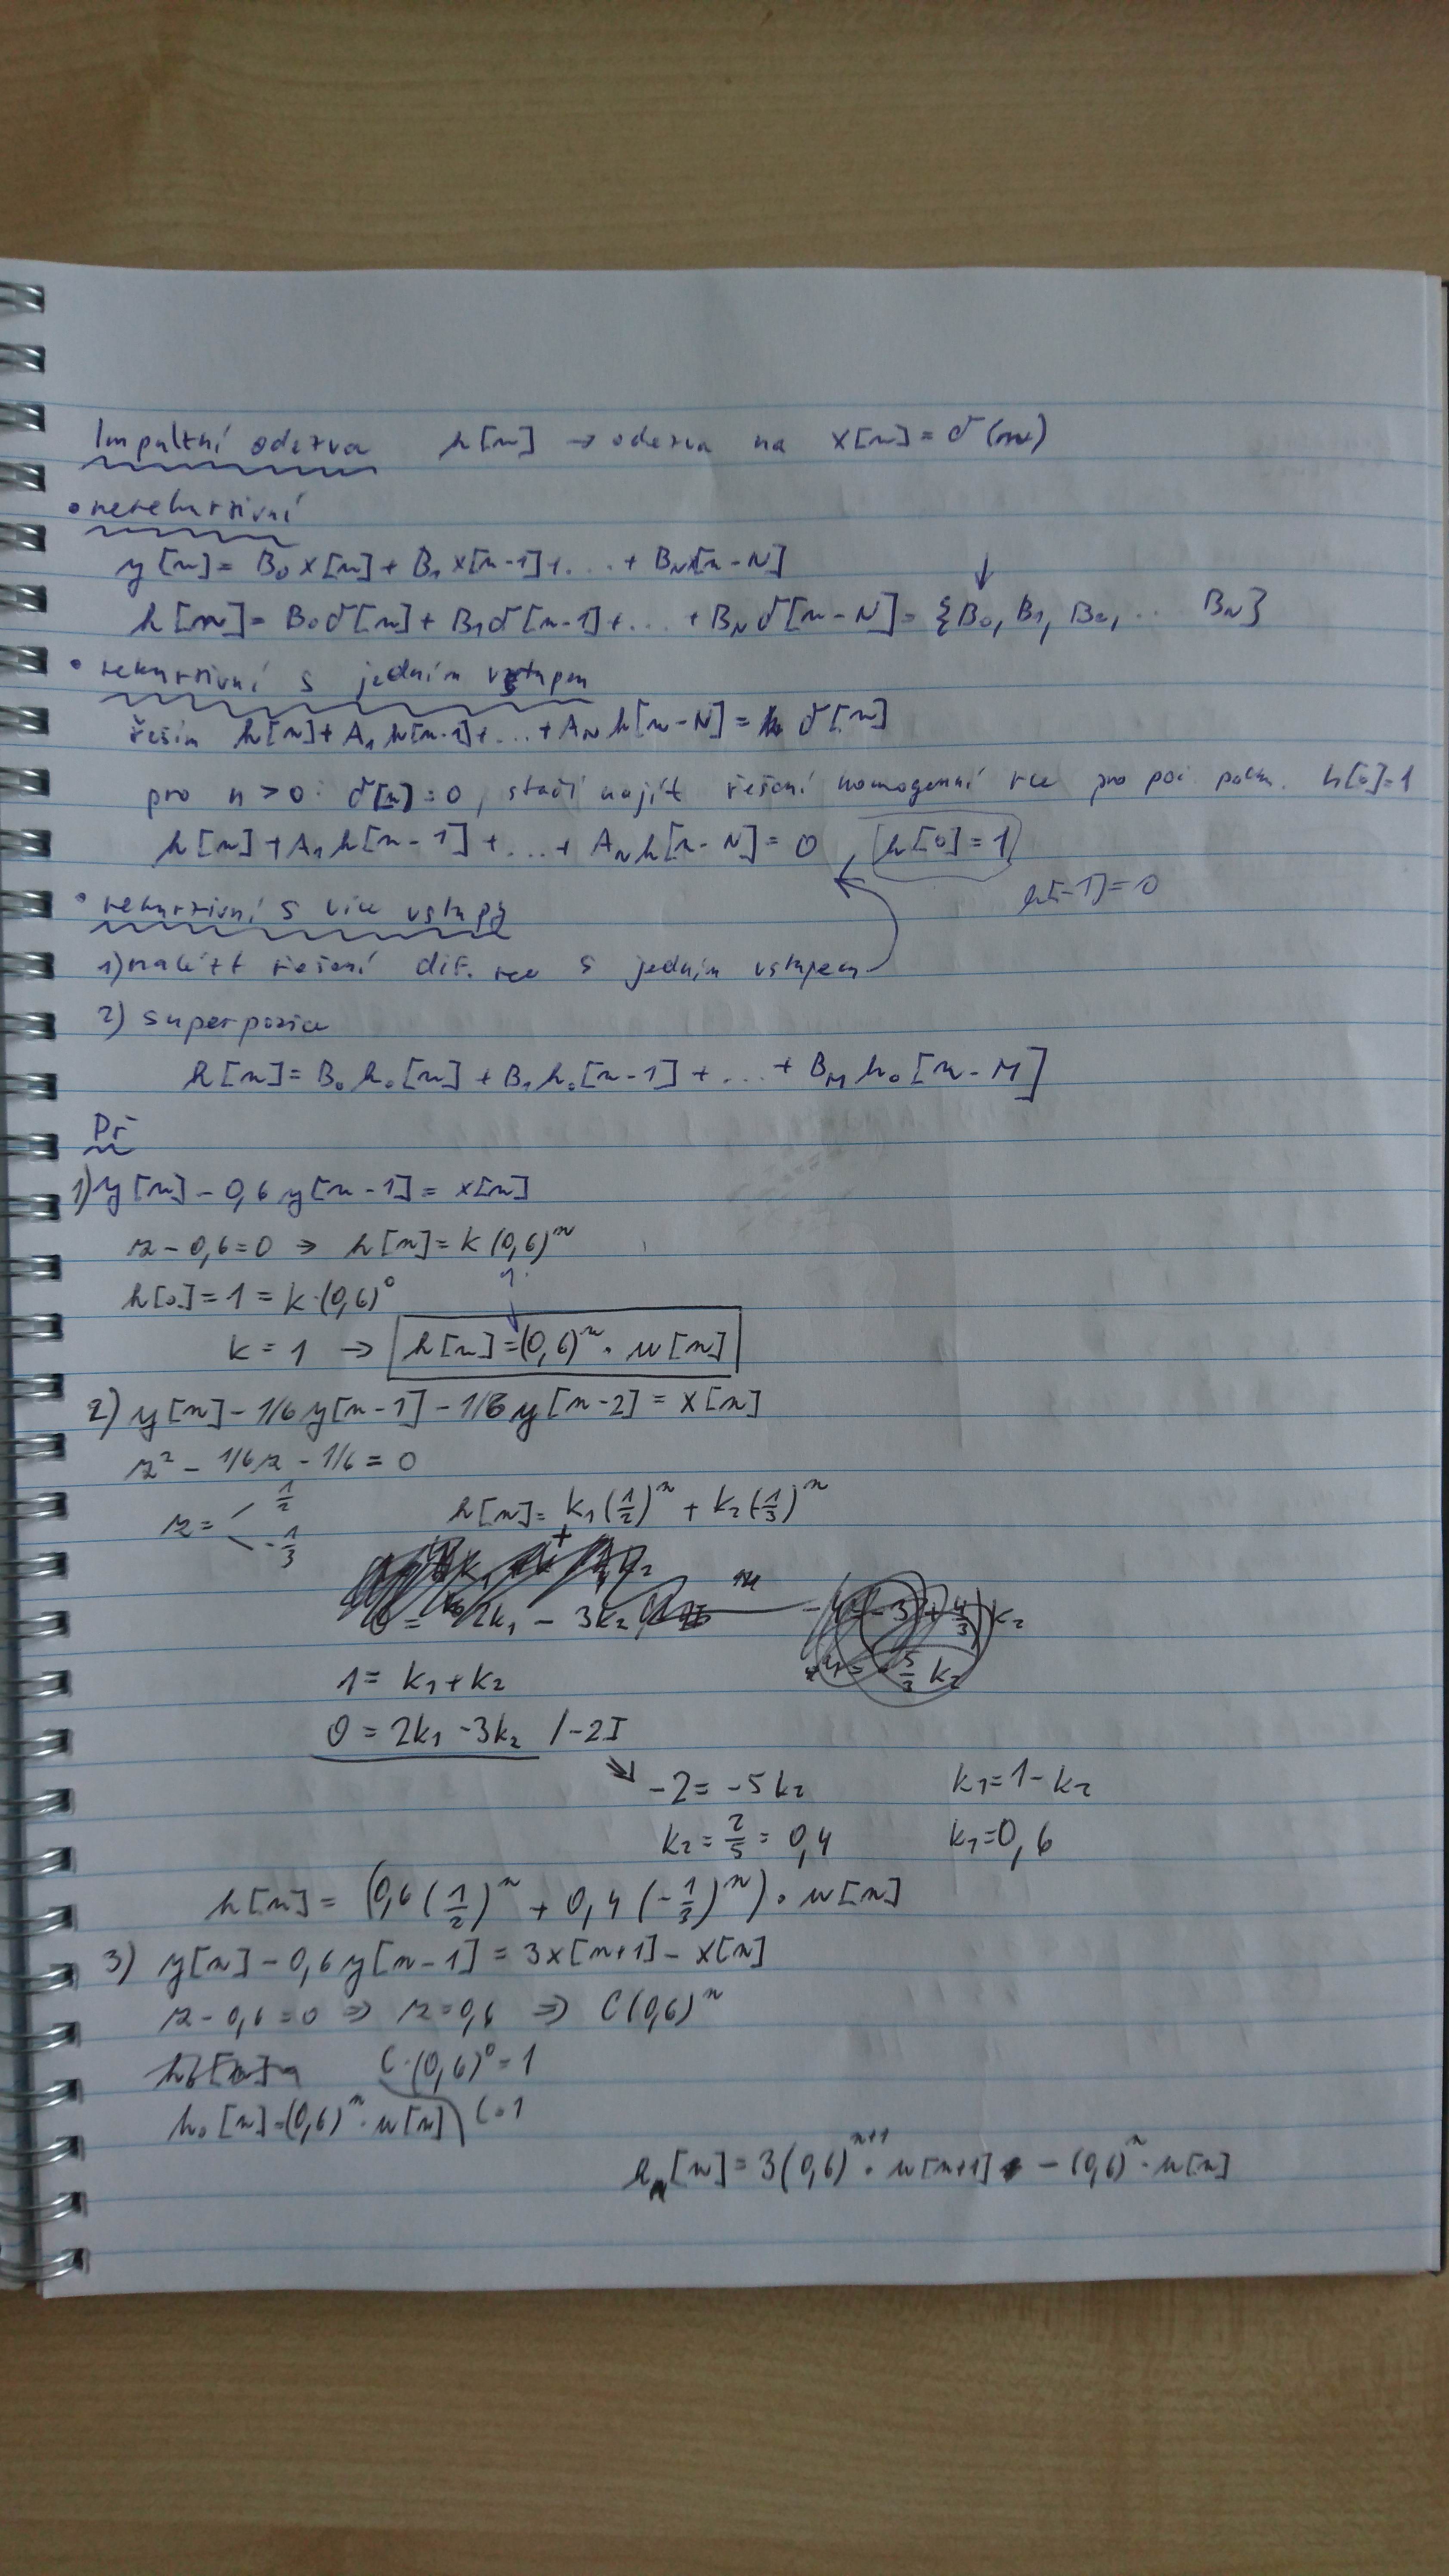 Impulzní odezva h[n] → odezva na x[n] = δ(n)
• nerekurzivní
y[n] = B₀x[n] + B₁x[n-1] + ... + B_N x[n-N]
h[n] = B₀δ[n] + B₁δ[n-1] + ... + B_N δ[n-N] = {B₀, B₁, B₂, ... B_N}
• rekurzivní s jedním vstupem
řeším h[n] + A₁h[n-1] + ... + A_N h[n-N] = δ[n]
pro n > 0: δ[n] = 0, stačí najít řešení homogenní rce pro poč. podm. h[0] = 1
h[n] + A₁h[n-1] + ... + A_N h[n-N] = 0, h[0] = 1
h[-1] = 0
• rekurzivní s více vstupy
1) nalézt řešení dif. rce s jedním vstupem
2) superpozice
h[n] = B₀h₀[n] + B₁h₀[n-1] + ... + B_M h₀[n-M]
Př
1) y[n] - 0,6y[n-1] = x[n]
z - 0,6 = 0 → h[n] = k(0,6)ⁿ
h[0] = 1 = k·(0,6)⁰
k = 1 → h[n] = (0,6)ⁿ · u[n]
2) y[n] - 1/6y[n-1] - 1/6y[n-2] = x[n]
z² - 1/6z - 1/6 = 0
z = 1/2
-1/3
h[n] = k₁(1/2)ⁿ + k₂(-1/3)ⁿ
0 = 2k₁ - 3k₂
1 = k₁ + k₂
0 = 2k₁ - 3k₂ /-2I
-2 = -5k₂ k₁ = 1 - k₂
k₂ = 2/5 = 0,4 k₁ = 0,6
h[n] = (0,6(1/2)ⁿ + 0,4(-1/3)ⁿ) · u[n]
3) y[n] - 0,6y[n-1] = 3x[n+1] - x[n]
z - 0,6 = 0 ⇒ z = 0,6 ⇒ C(0,6)ⁿ
C·(0,6)⁰ = 1
h₀[n] = (0,6)ⁿ · u[n] C = 1
h[n] = 3(0,6)ⁿ⁺¹ · u[n+1] - (0,6)ⁿ · u[n]